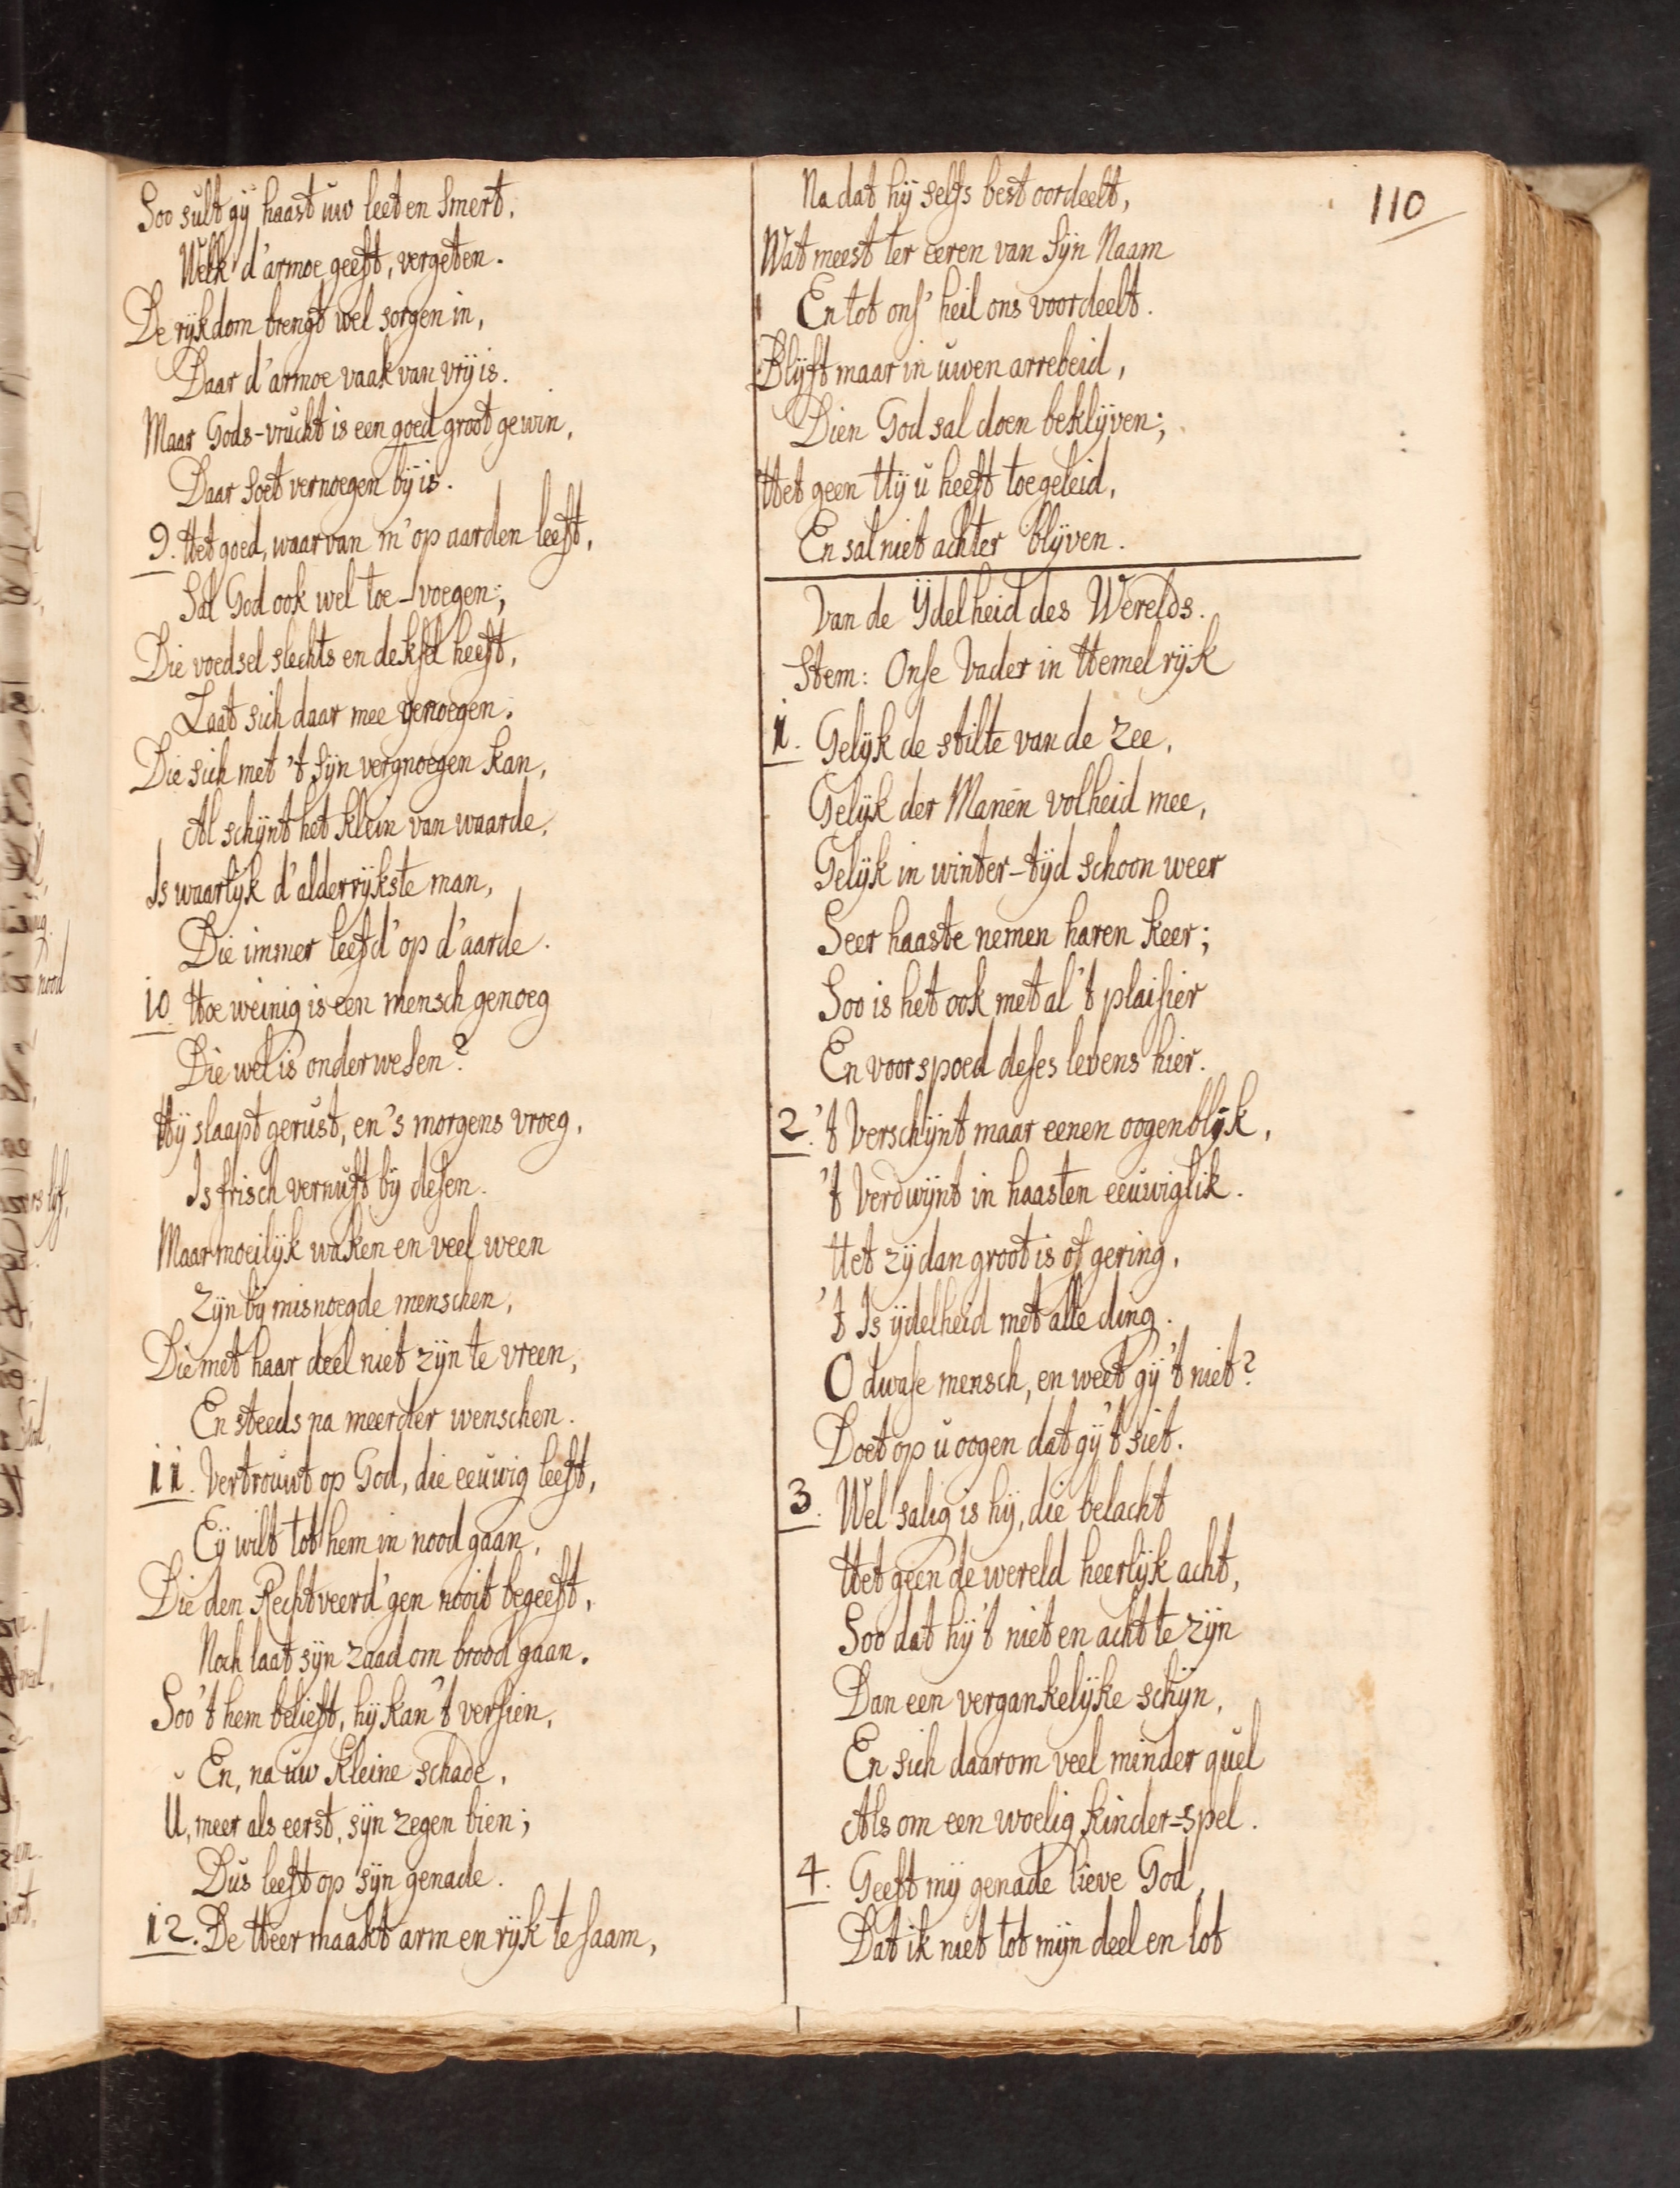 Soo sult gij haast uw leet en Smert,
Welk d'armoe geeft, vergeten.
De rijkdom brengt wel sorgen in,
Daar d'armoe vaak van vrij is.
Maar Gods-vrucht is een goed groot gewin,
Daar soet vernoegen bij is.
9. Het goed, waarvan m'op aarden leeft,
Sal God ook wel toe-voegen;
Die voedsel slechts en deksel heeft,
Laat sich daar mee genoegen.
Die sich met 't sijn vergnoegen kan,
Al schijnt het klein van waarde,
Is waarlijk d'alderrijkste man,
Die immer leefd' op d'aarde.
10. Hoe weinig is een mensch genoeg
Die wel is onderwesen?
Hij slaapt gerust, en 's morgens vroeg,
Is frisch vernuft bij desen.
Maar moeilijk waken en veel ween
Zijn bij misnoegde menschen,
Die met haar deel niet zijn te vreen,
En steeds na meerder wenschen.
11. Vertrouwt op God, die eeuwig leeft,
Eij wilt tot hem in nood gaan,
Die den Rechtveerd'gen nooit begeeft,
Noch laat sijn zaad om brood gaan.
Soo 't hem belieft, hij kan 't versien,
En, na uw kleine schade,
U, meer als eerst, sijn zegen bien;
Dus leeft op sijn genade.
12. De Heer maakt arm en rijk te saam,
110
Na dat hij selfs best oordeelt,
Wat meest ter eeren van Sijn Naam
En tot ons' heil ons voordeelt.
Blijft maar in uwen arrebeid,
Dien God sal doen beklijven;
Het geen Hij u heeft toegeleid,
En sal niet achter blijven.
Van de IJdelheid des Werelds.
Stem: Onse Vader in Hemelrijk
1. Gelijk de stilte van de zee,
Gelijk der Manen volheid mee,
Gelijk in winter-tijd schoon weer
Seer haaste nemen haren keer;
Soo is het ook met al 't plaisier
En voorspoed deses levens hier.
2. 't Verschijnt maar eenen oogenblijk,
't Verdwijnt in haasten eeuwiglik.
Het zij dan groot is of gering,
't Is ijdelheid met alle ding.
O dwase mensch, en weet gij 't niet?
Doet op u oogen dat gij 't siet.
3. Wel salig is hij, die belacht
Het geen de wereld heerlijk acht,
Soo dat hij 't niet en acht te zijn
Dan een vergankelijke schijn,
En sich daarom veel minder quel
Als om een woelig kinder-spel.
4. Geeft mij genade lieve God,
Dat ik niet tot mijn deel en lot